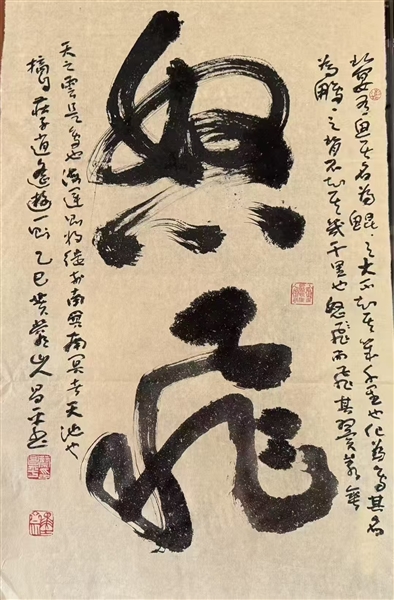 北冥有魚其名為鯤々之大不知其幾千里也化為鳥其名
為鵬々之背不知其幾千里也怒飛而飛其翼若垂
怒飛
天之雲是鳥也海運則將徙於南冥南冥者天池也
摘莊子逍遙遊一則乙巳